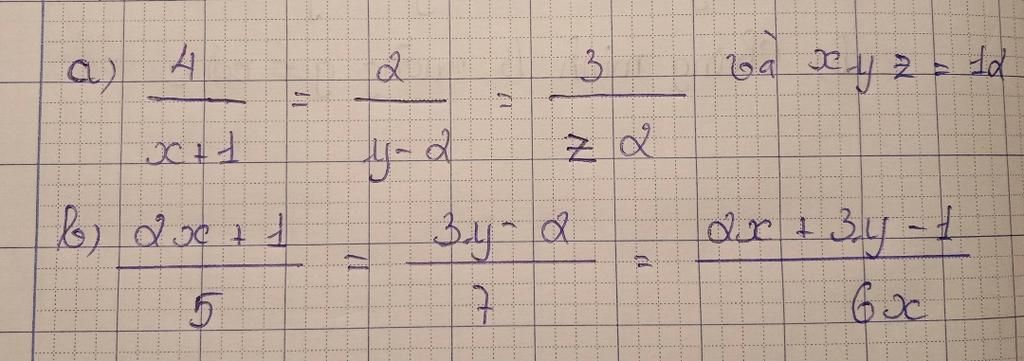 a) 4/(x+1) = 2/(y-2) = 3/(z 2) và xyz = 12
b) (2x+1)/5 = (3y-2)/7 = (2x+3y-1)/6x